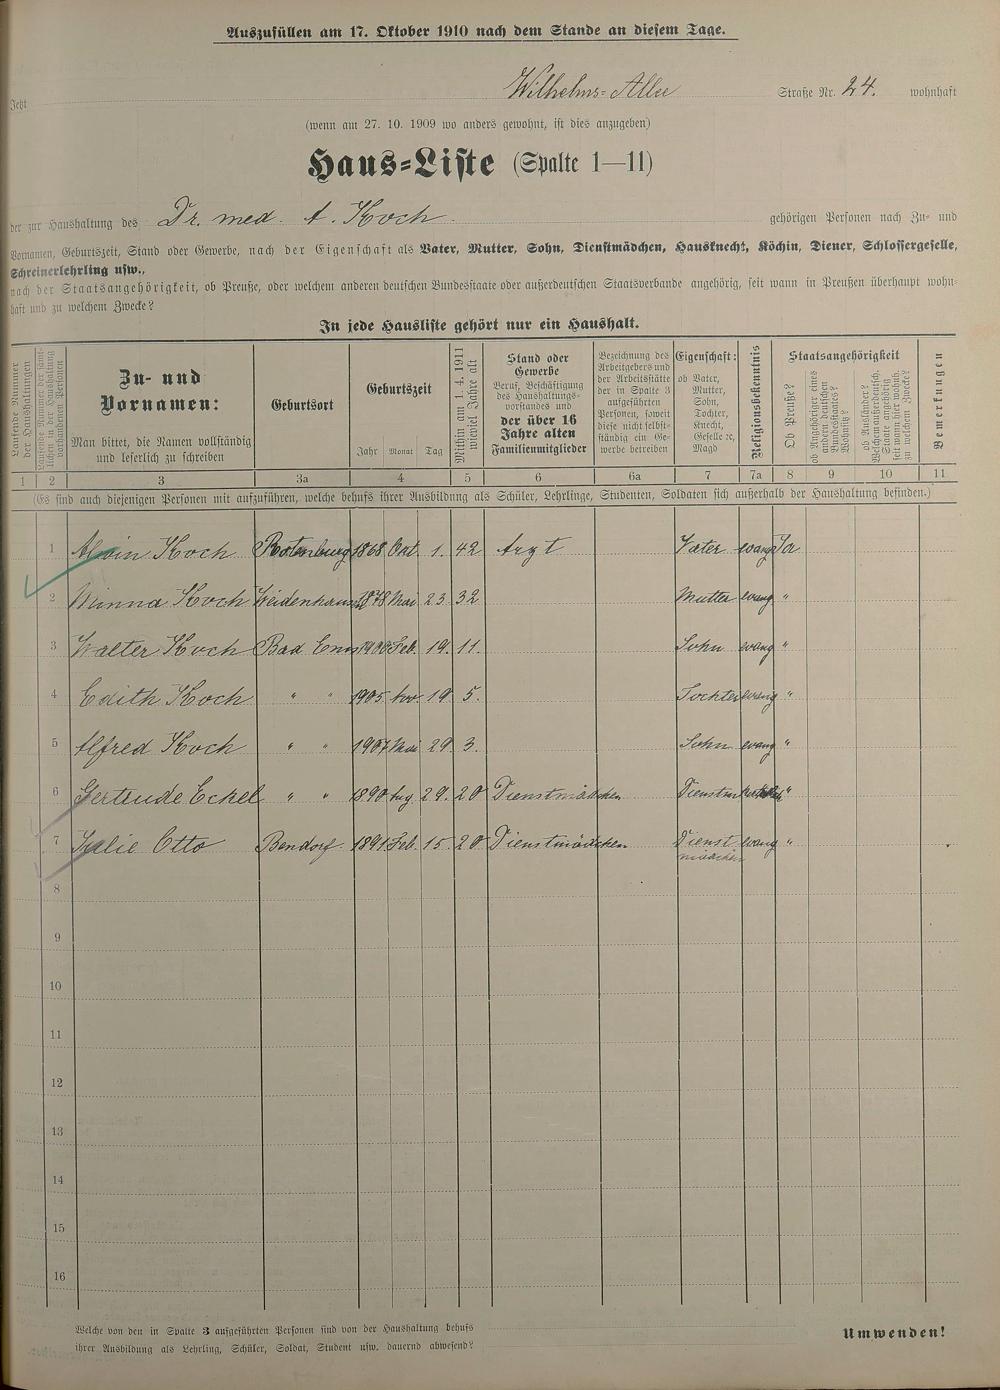 Auszufüllen am 17. Oktober 1910 nach dem Stande an diesem Tage.
Jetzt Wilhelms-Allee Straße Nr. 24. wohnhaft
(wenn am 27. 10. 1909 wo anders gewohnt, ist dies anzugeben)
Haus-Liste (Spalte 1—11)
der zur Haushaltung des Dr. med. A. Koch gehörigen Personen nach Zu- und
Vornamen, Geburtszeit, Stand oder Gewerbe, nach der Eigenschaft als Vater, Mutter, Sohn, Dienstmädchen, Hausknecht, Köchin, Diener, Schlossergeselle,
Schreinerlehrling usw.,
nach der Staatsangehörigkeit, ob Preuße, oder welchem anderen deutschen Bundesstaate oder außerdeutschen Staatsverbande angehörig, seit wann in Preußen überhaupt wohn-
haft und zu welchem Zwecke?
In jede Hausliste gehört nur ein Haushalt.
Laufende Nummer
der Haushaltungen
Laufende Nummer der sämt-
lichen in der Haushaltung
vorhandenen Personen
Zu- und
Vornamen:
Man bittet, die Namen vollständig
und leserlich zu schreiben
Geburtsort
Geburtszeit
Jahr Monat Tag
Mithin am 1. 4. 1911
wieviel Jahre alt
Stand oder
Gewerbe
Beruf, Beschäftigung
des Haushaltungs-
vorstandes und
der über 16
Jahre alten
Familienmitglieder
Bezeichnung des
Arbeitgebers und
der Arbeitsstätte
der in Spalte 3
aufgeführten
Personen, soweit
diese nicht selbst-
ständig ein Ge-
werbe betreiben
Eigenschaft:
ob Vater,
Mutter,
Sohn,
Tochter,
Knecht,
Geselle ec,
Magd
Religionsbekenntnis
Staatsangehörigkeit
Ob Preuße?
ob Angehöriger eines
andern deutschen
Bundesstaates?
Wohnsitz?
ob Ausländer?
Welchem außerdeutsch.
Staate angehörig
seit wann hier wohnh.
zu welchem Zwecke?
Bemerkungen
1 2 3 3a 4 5 6 6a 7 7a 8 9 10 11
(Es sind auch diejenigen Personen mit aufzuführen, welche behufs ihrer Ausbildung als Schüler, Lehrlinge, Studenten, Soldaten sich außerhalb der Haushaltung befinden.)
1 Alwin Koch Rotenburg 1868 Okt. 1. 42 Arzt Vater evang Ja
2 Minna Koch 1878 Mai 23. 32 Mutter evang "
3 Walter Koch Bad Ems Feb. 19. 11. Sohn evang "
4 Edith Koch " " 1905. Nov. 19. 5. Tochter evang "
5 Alfred Koch " " 1907 Mai 29. 3. Sohn evang "
6 Gertrude Eckel " " 1890 Aug 29. 20 Dienstmädchen "
7 Julie Otto Bendorf 1891 Feb. 15. 20 Dienstmädchen Dienst evang "
mädchen
8
9
10
11
12
13
14
15
16
Welche von den in Spalte 3 aufgeführten Personen sind von der Haushaltung behufs
ihrer Ausbildung als Lehrling, Schüler, Soldat, Student usw. dauernd abwesend?
Umwenden!